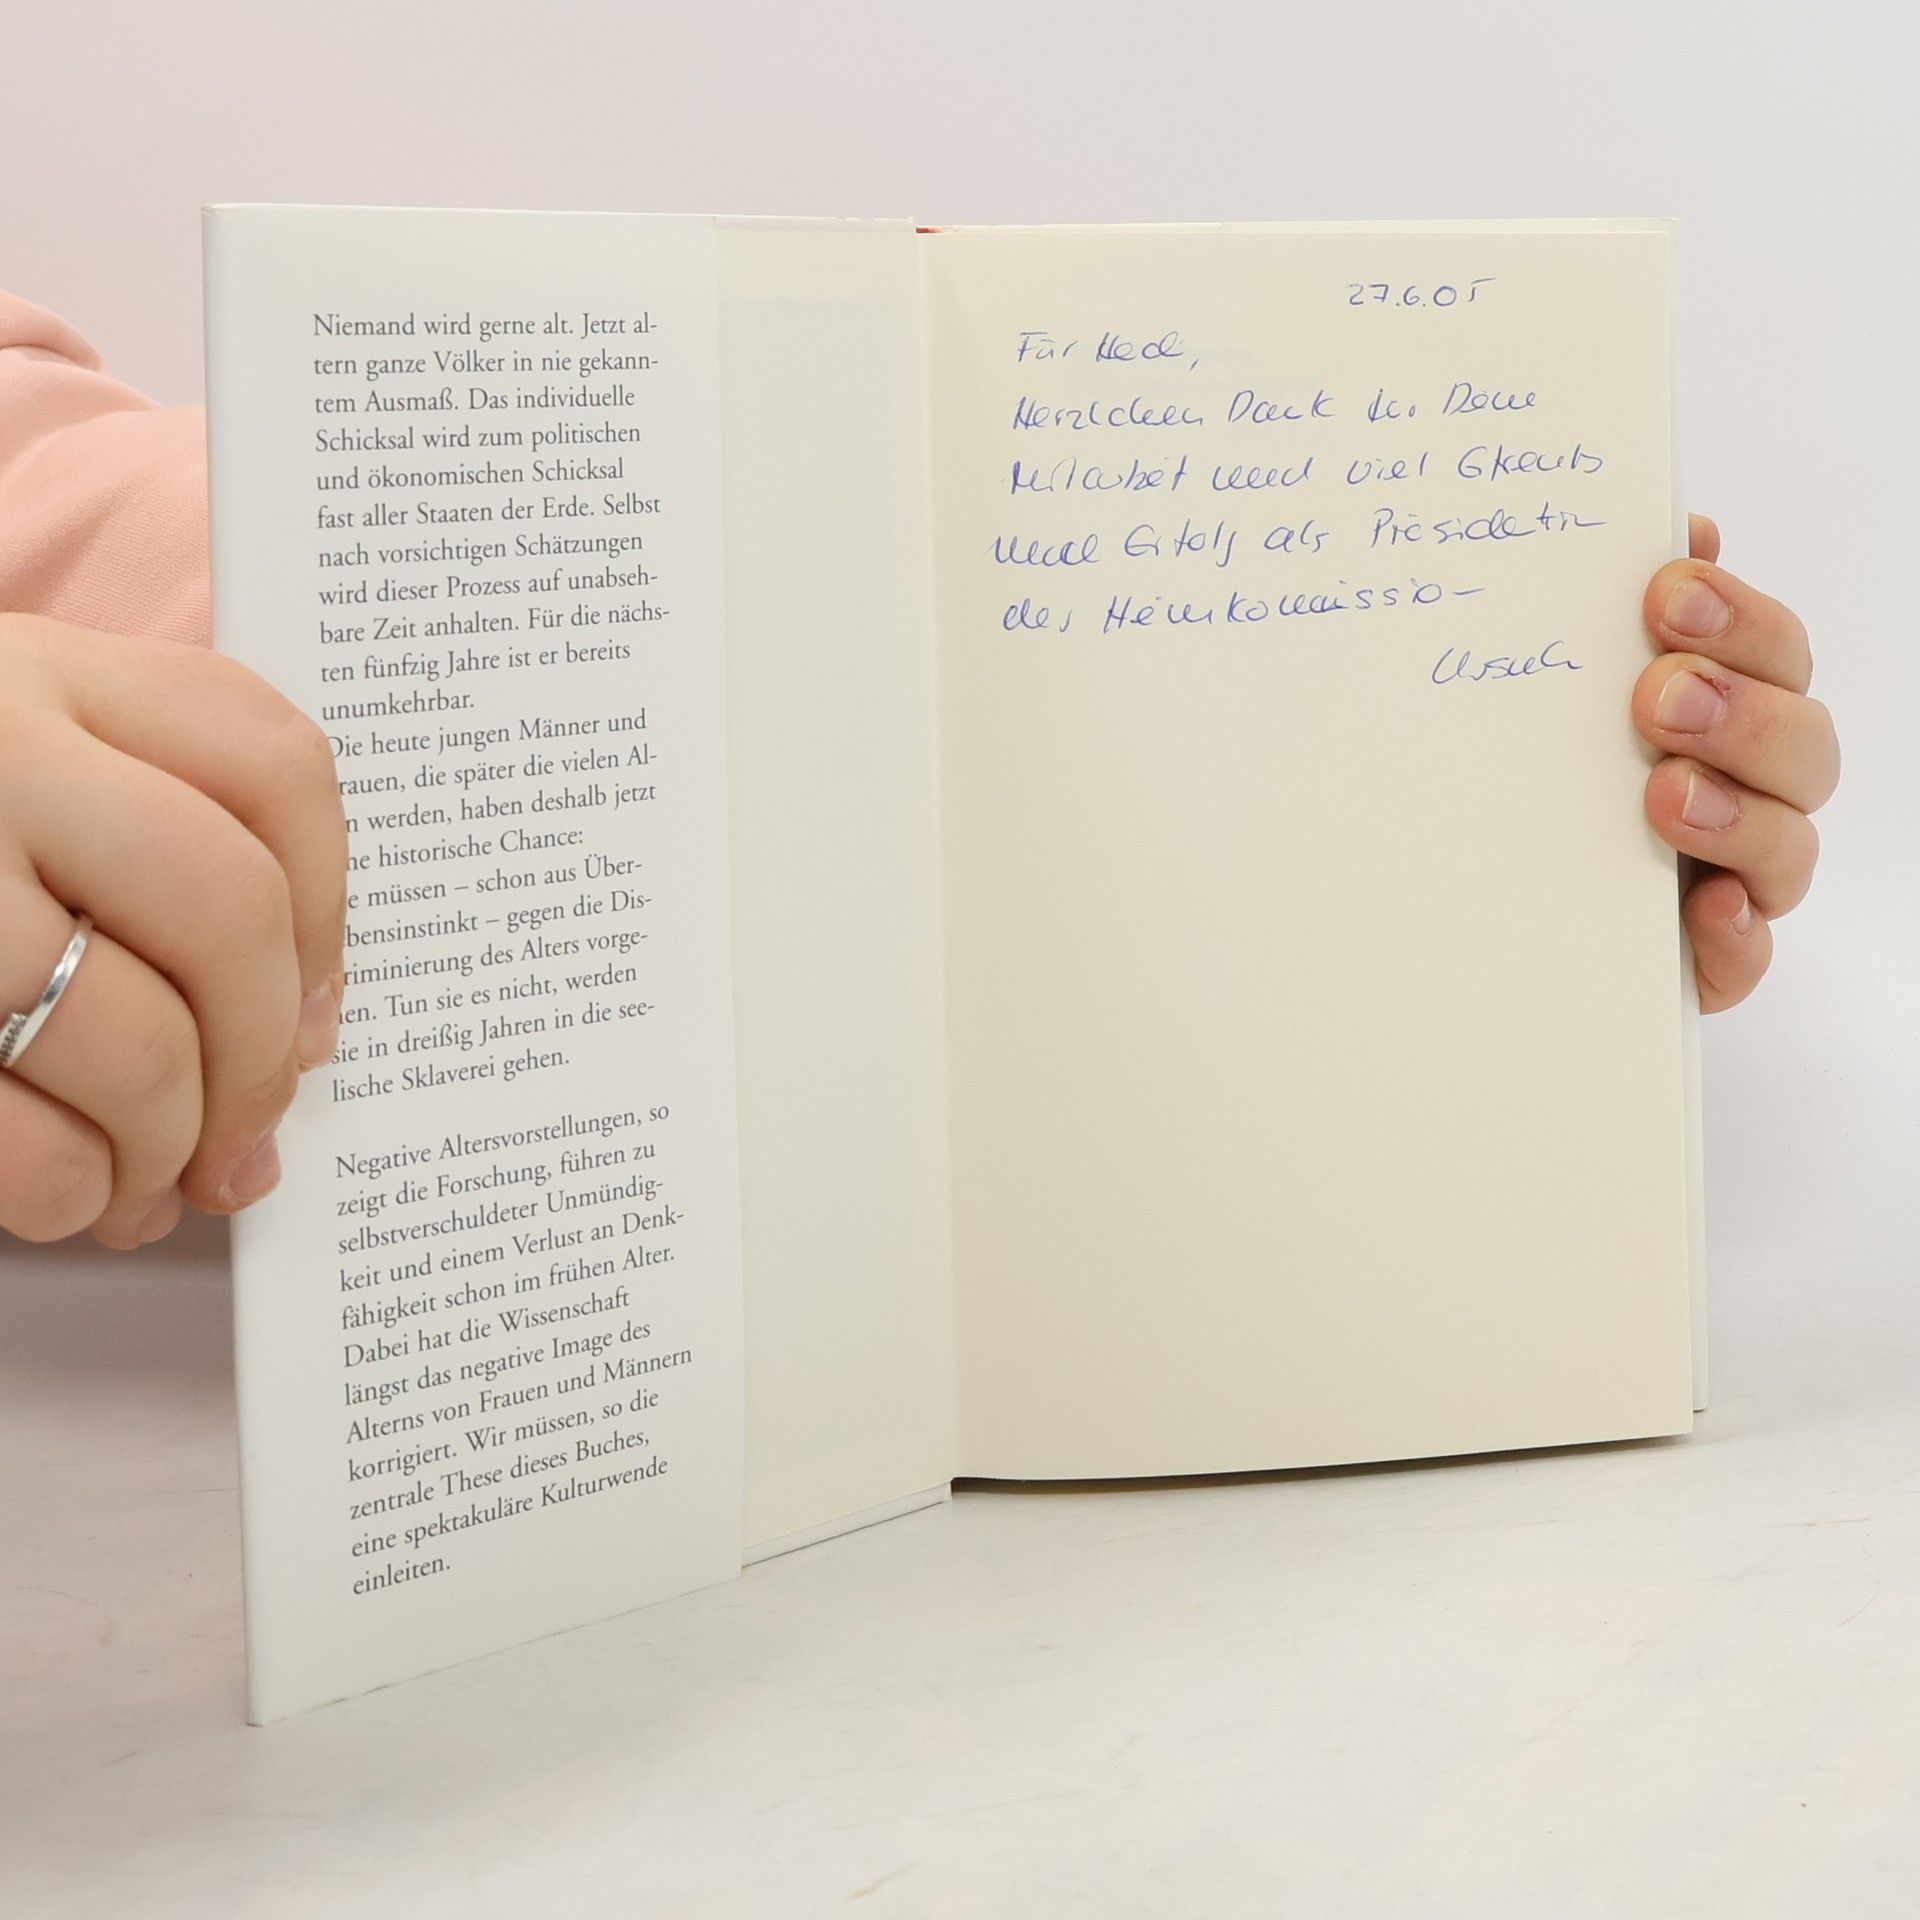 Niemand wird gerne alt. Jetzt al-
tern ganze Völker in nie gekann-
tem Ausmaß. Das individuelle
Schicksal wird zum politischen
und ökonomischen Schicksal
fast aller Staaten der Erde. Selbst
nach vorsichtigen Schätzungen
wird dieser Prozess auf unabseh-
bare Zeit anhalten. Für die nächs-
ten fünfzig Jahre ist er bereits
unumkehrbar.
Die heute jungen Männer und
rauen, die später die vielen Al-
n werden, haben deshalb jetzt
ne historische Chance:
e müssen – schon aus Über-
bensinstinkt – gegen die Dis-
riminierung des Alters vorge-
en. Tun sie es nicht, werden
sie in dreißig Jahren in die see-
lische Sklaverei gehen.
Negative Altersvorstellungen, so
zeigt die Forschung, führen zu
selbstverschuldeter Unmündig-
keit und einem Verlust an Denk-
fähigkeit schon im frühen Alter.
Dabei hat die Wissenschaft
längst das negative Image des
Alterns von Frauen und Männern
korrigiert. Wir müssen, so die
zentrale These dieses Buches,
eine spektakuläre Kulturwende
einleiten.
27.6.05
Für Hedi,
Herzlichen Dank für Deine
Mitarbeit und viel
und Erfolg als Präsidentin
der Heimkommission
Ursula